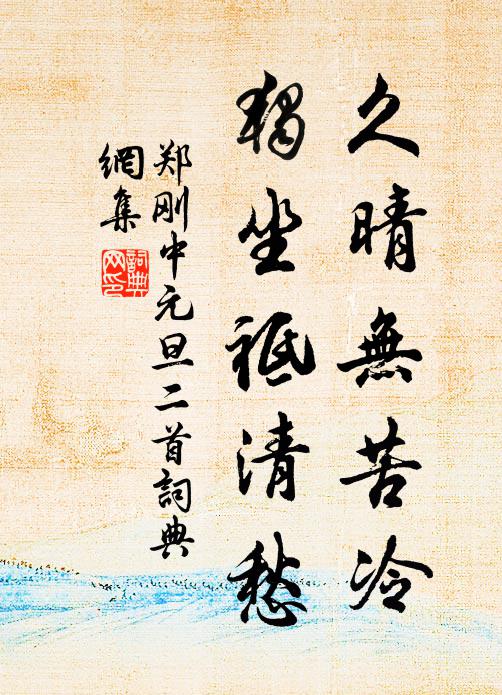 久晴無苦冷
獨坐祗清愁
郑刚中元旦二首詞典
網集
詞典
网印